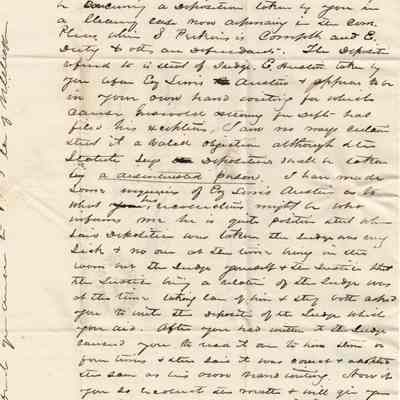 a Deposition taken by you in
a Chancery case now depending in the Com.
Pleas when S Perkins is Complt and E.
Doty & others are Defendants. The Deposition
refered to is that of Judge E. Austin taken by
you before Esq Lewis Austin & appears to be
in your own hand writing for which
cause Griswold attorney for Deft has
filed his exceptions, I am no ways certain
that it a valed objection although the
Statute says Depositions shall be taken
by a disinterested person. I have made
some inquiries of Esq Lewis Austin as to
what his recollection might be who
informs me he is quite positive that when
said Deposition was taken the Judge was very
Sick & no one at the time being in the
room but the Judge yourself & the Justice that
the Justice being a relation of the Judge was
at the time taking care of him & they both asked
you to write the deposition of the Judge which
you did. After you had written it the Judge
caused you to read it over to him three or
four times & then said it was correct &
the same as his own hand writing. Now if
you so recollect the matter & will give your